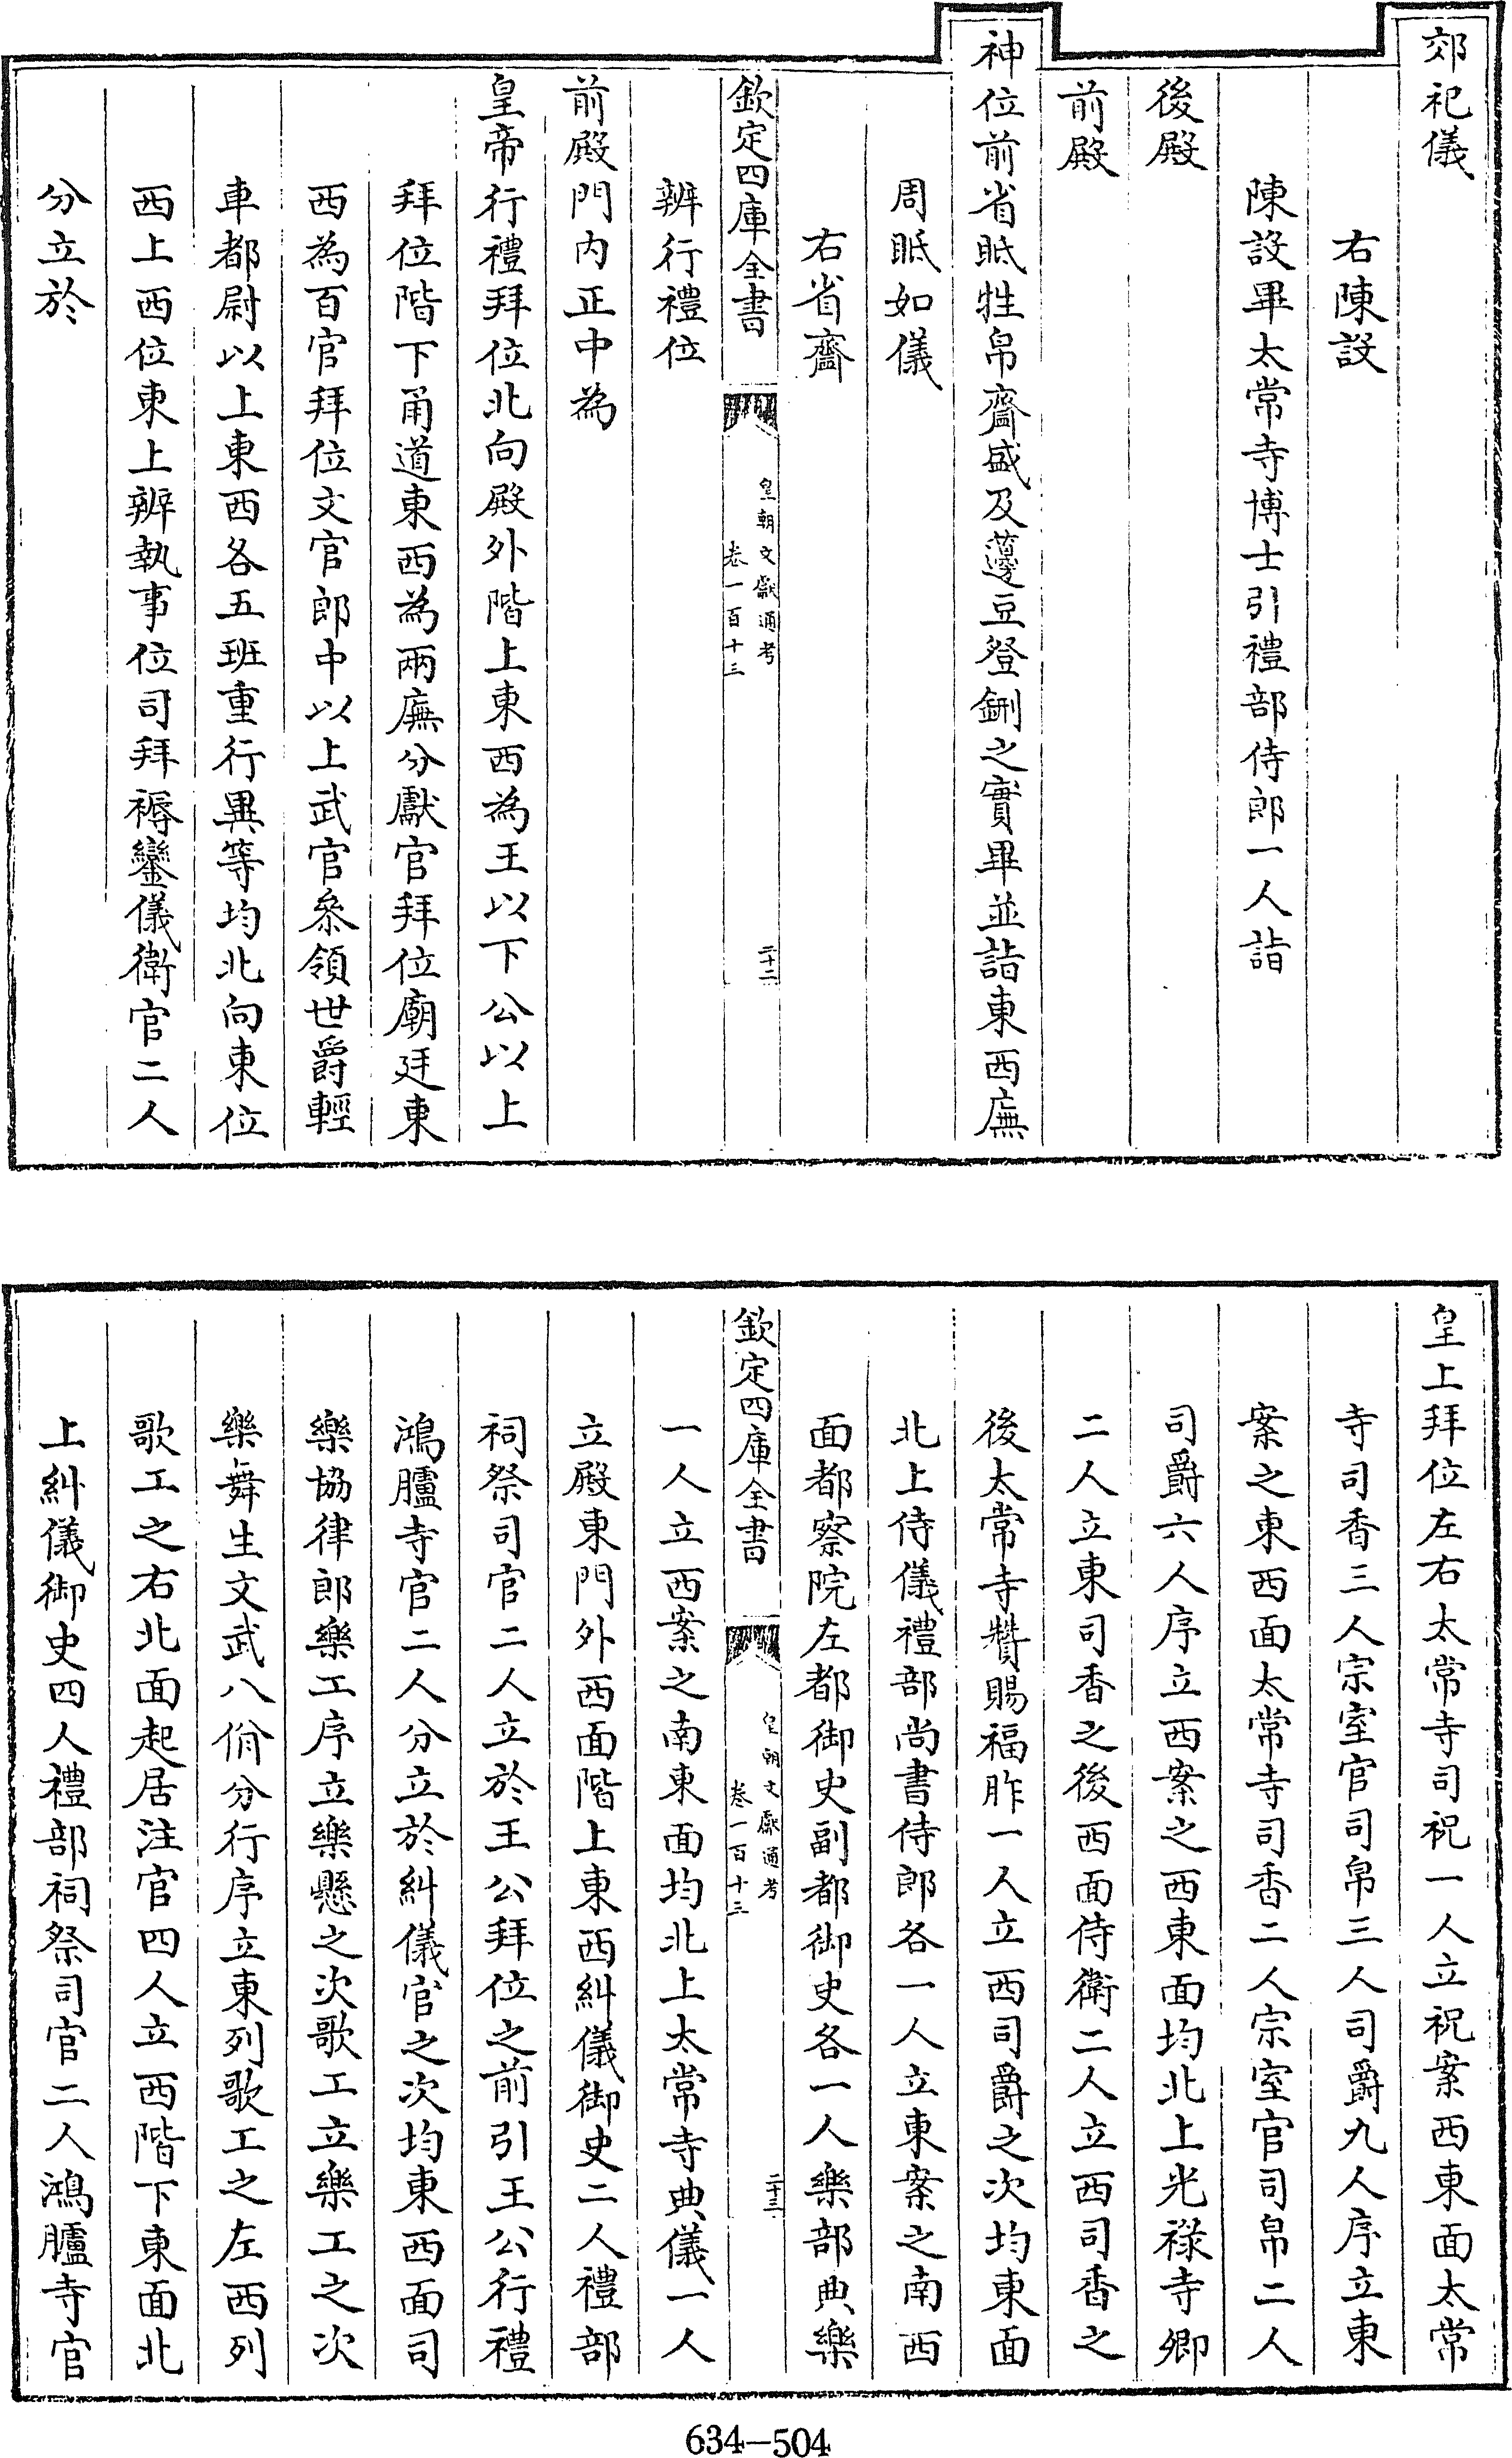 郊祀儀
右陳設
陳設畢太常寺博士引禮部侍郎一人詣
後殿
前殿
神位前省眡牲帛齍盛及籩豆登鉶之實畢並詣東西廡
周眡如儀
右省齍
欽定四庫全書
皇朝文獻通考
卷一百十三
二十二
辨行禮位
前殿門內正中為
皇帝行禮拜位北向殿外階上東西為王以下公以上
拜位階下甬道東西為兩廡分獻官拜位廟廷東
西為百官拜位文官郎中以上武官叅領世爵輕
車都尉以上東西各五班重行異等均北向東位
西上西位東上辨執事位司拜褥鑾儀衛官二人
分立於
皇上拜位左右太常寺司祝一人立祝案西東面太常
寺司香三人宗室官司帛三人司爵九人序立東
案之東西面太常寺司香二人宗室官司帛二人
司爵六人序立西案之西東面均北上光祿寺卿
二人立東司香之後西面侍衛二人立西司香之
後太常寺贊賜福胙一人立西司爵之次均東面
北上侍儀禮部尚書侍郎各一人立東案之南西
面都察院左都御史副都御史各一人樂部典樂
欽定四庫全書
皇朝文獻通考
卷一百十三
二十三
一人立西案之南東面均北上太常寺典儀一人
立殿東門外西面階上東西糾儀御史二人禮部
祠祭司官二人立於王公拜位之前引王公行禮
鴻臚寺官二人分立於糾儀官之次均東西面司
樂協律郎樂工序立樂懸之次歌工立樂工之次
樂舞生文武八佾分行序立東列歌工之左西列
歌工之右北面起居注官四人立西階下東面北
上糾儀御史四人禮部祠祭司官二人鴻臚寺官
634-504